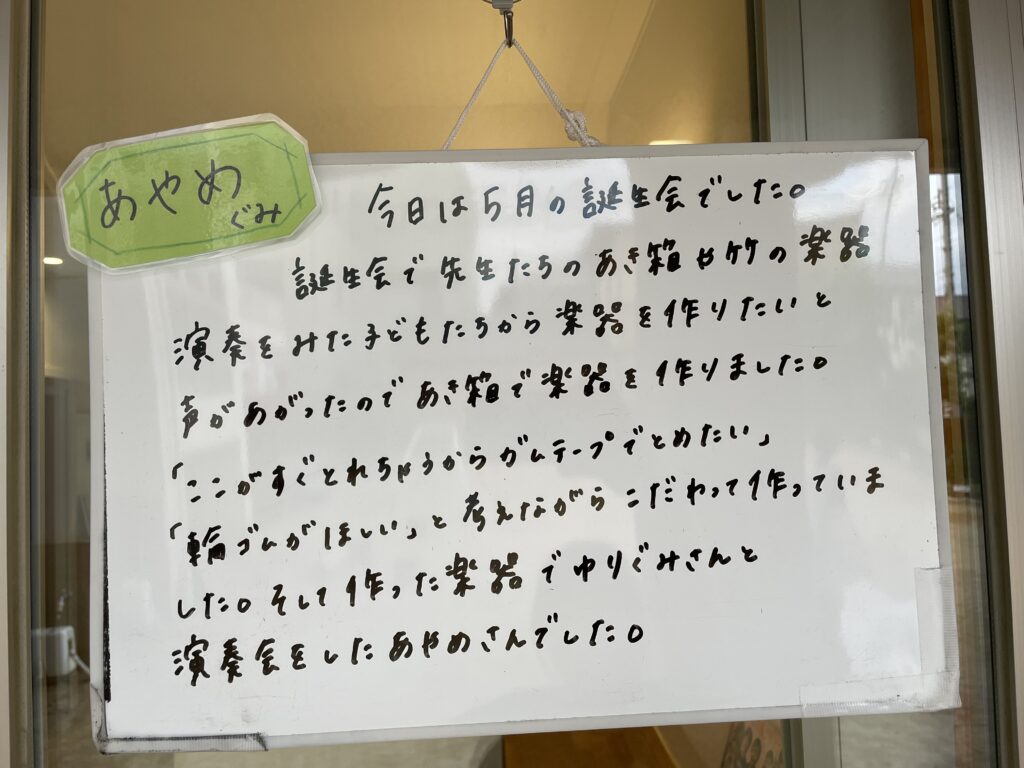 あやめ
ぐみ
今日は5月の誕生会でした。
誕生会で先生たちのあき箱や竹の楽器
演奏をみた子どもたちから楽器を作りたいと
声があがったのであき箱で楽器を作りました。
「ここがすぐとれちゃうからガムテープでとめたい」
「輪ゴムがほしい」と考えながらこだわって作っていま
した。そして作った楽器でゆりぐみさんと
演奏会をしたあやめさんでした。